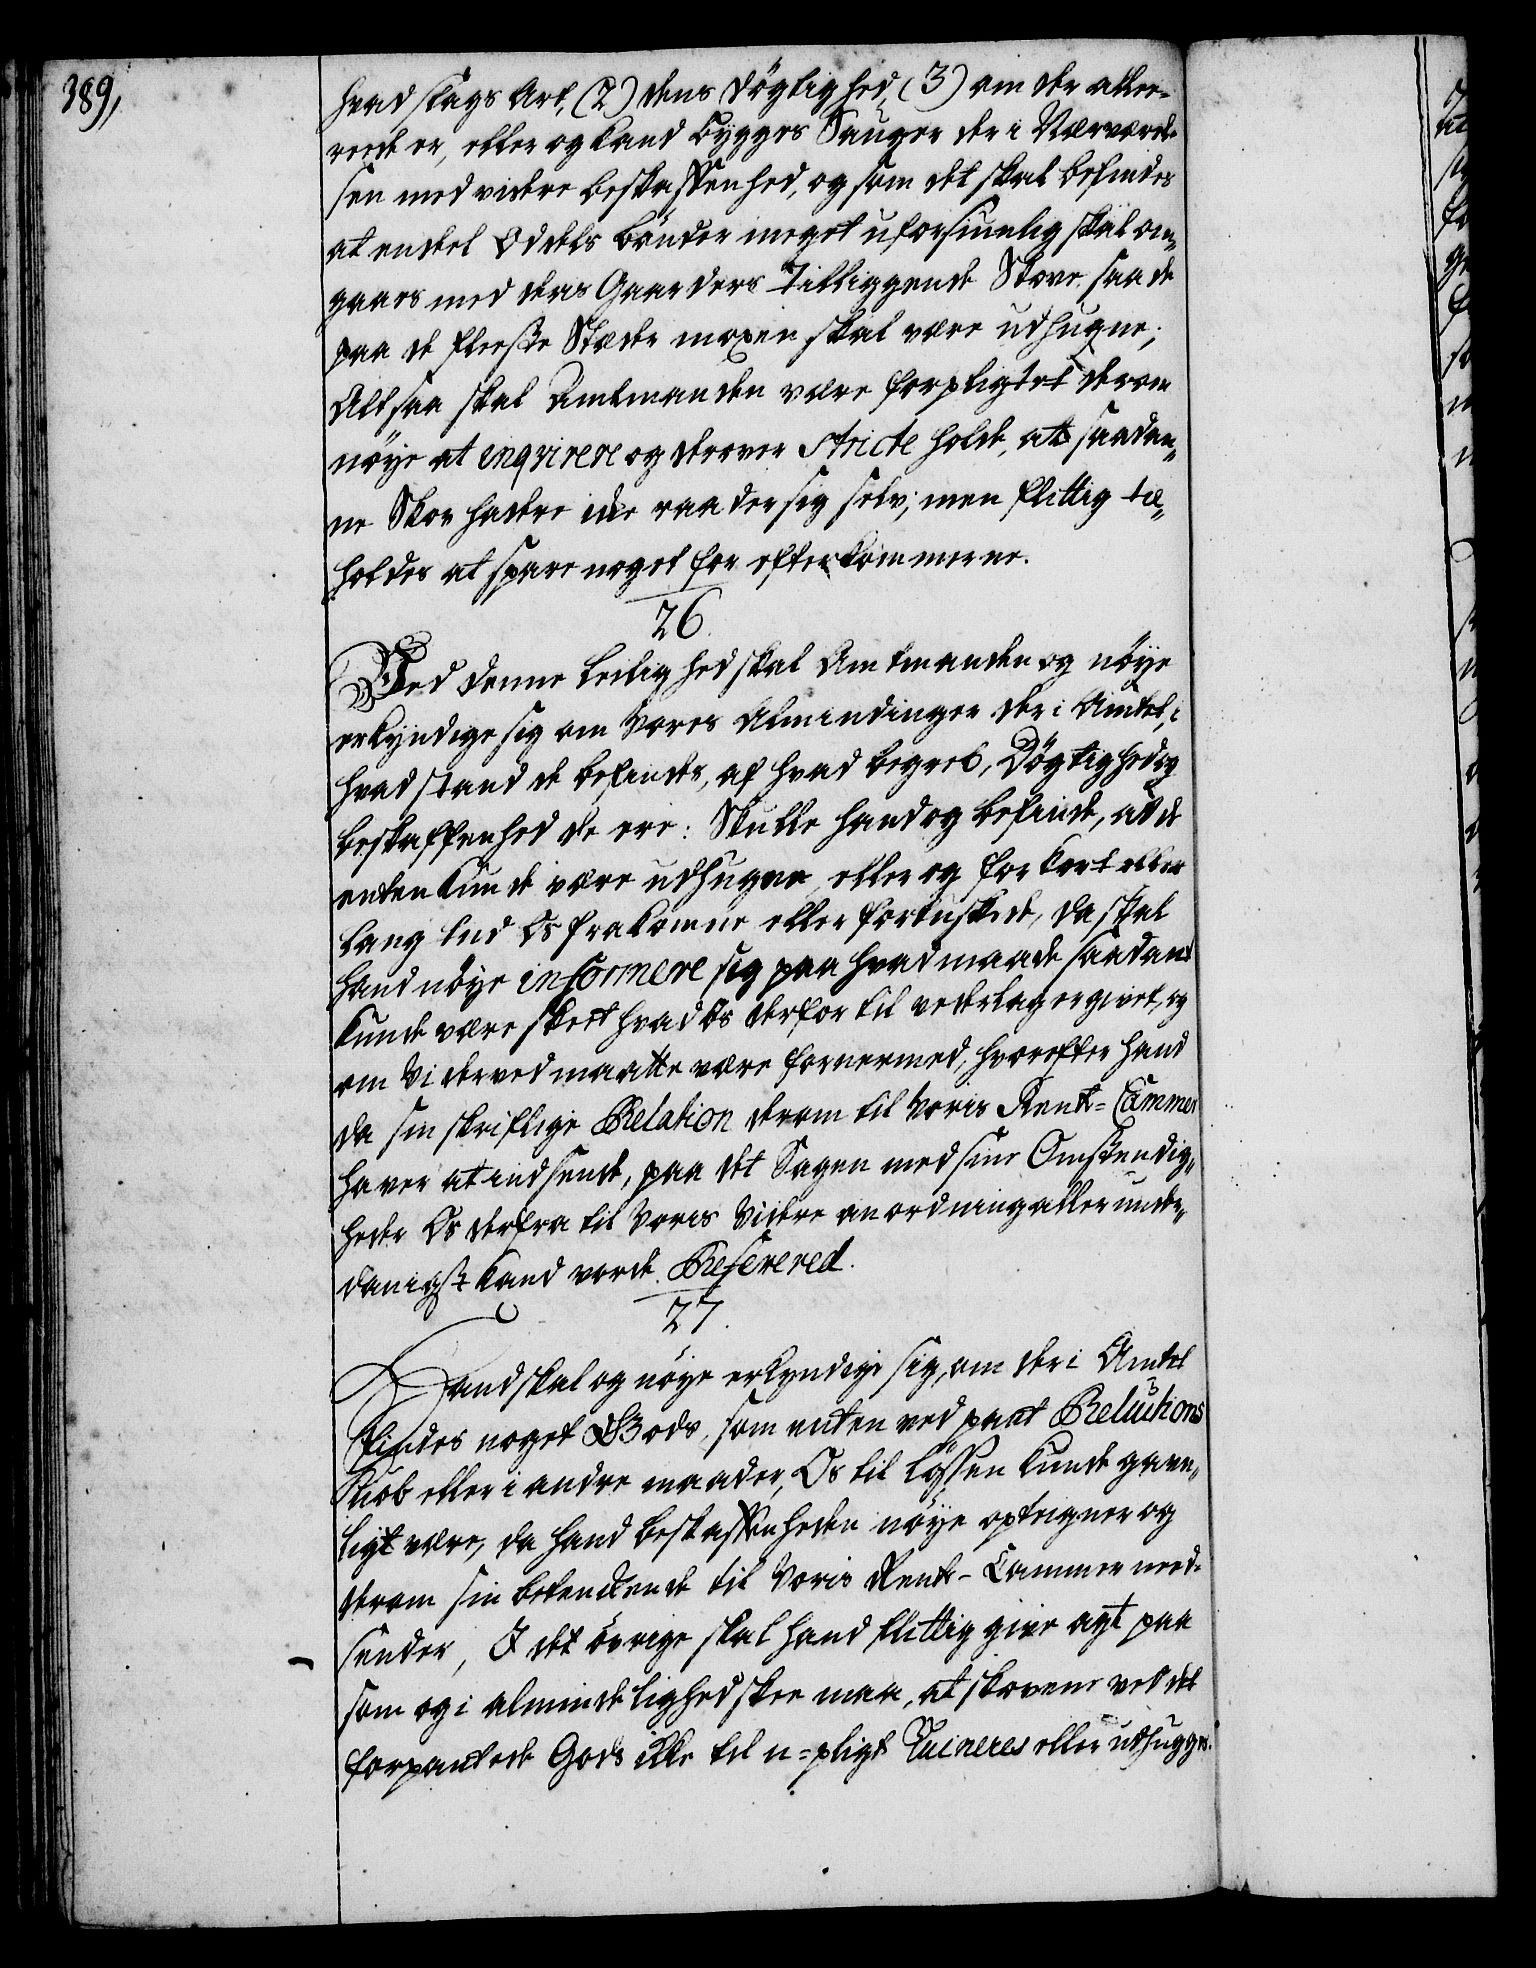 389,
hvad slags Art, (2) dens dögtighed, (3) om der aller-
reede er, eller og kand bygges Sauger der i Nærværel-
sen med videre beskaffenhed, og som det skal befindes
at endel Odels bönder meget uforsiunlig skal om-
gaaes med deris Gaarders tilliggende Skove saa de
paa de fleeste Stæder moxen skal være udhugne;
Alt saa skal Amtmanden være forpligtet derom
nöye at inqvirere og derover stricte holde, at saadan-
ne Skov hadere icke raader sig selv; men flittig til-
holdes at spare noget for efterkommerne.
26.
Ved denne leilighed skal Amtmanden og nöye
erkyndige sig om Vores Almindinger der i Amtet, i
hvad stand de befindes, af hvad begreb, Dögtighed og
beskaffenhed de ere: Skulle hand og befinde, at de
enten kunde være udhugne, eller og for kort eller
lang tid Os frakomne eller fortuskede, da skal
hand nöye informere sig paa hvad maade saadant
kunde være skeet hvad Os derfor til vederlag er givet, og
om Vi derved maatte være fornermed, hvorefter hand
da sin skriftlige Relation derom til Voris Rente-Cammer
haver at indsende, paa det Sagen med sine Omstendig-
heder Os derfra til Voris Videre anordning allerunder-
danigst kand vorde Refereret.
27.
Hand skal og nöye erkyndige sig, om der i Amtet
findes noget Gods, som enten ved pant Reluitions
kiöb eller i andre maader, Os til lössen kunde gavn-
ligt være, da hand beskaffenheden nöye optegner og
derom sin betenckende til Voris Rente-Cammer need-
sender, I det övrige skal hand flittig give agt paa
som og i almindelighed skee maa, at skovene ved det
forpantede Gods ikke til u-pligt Ruineres eller udhugges.